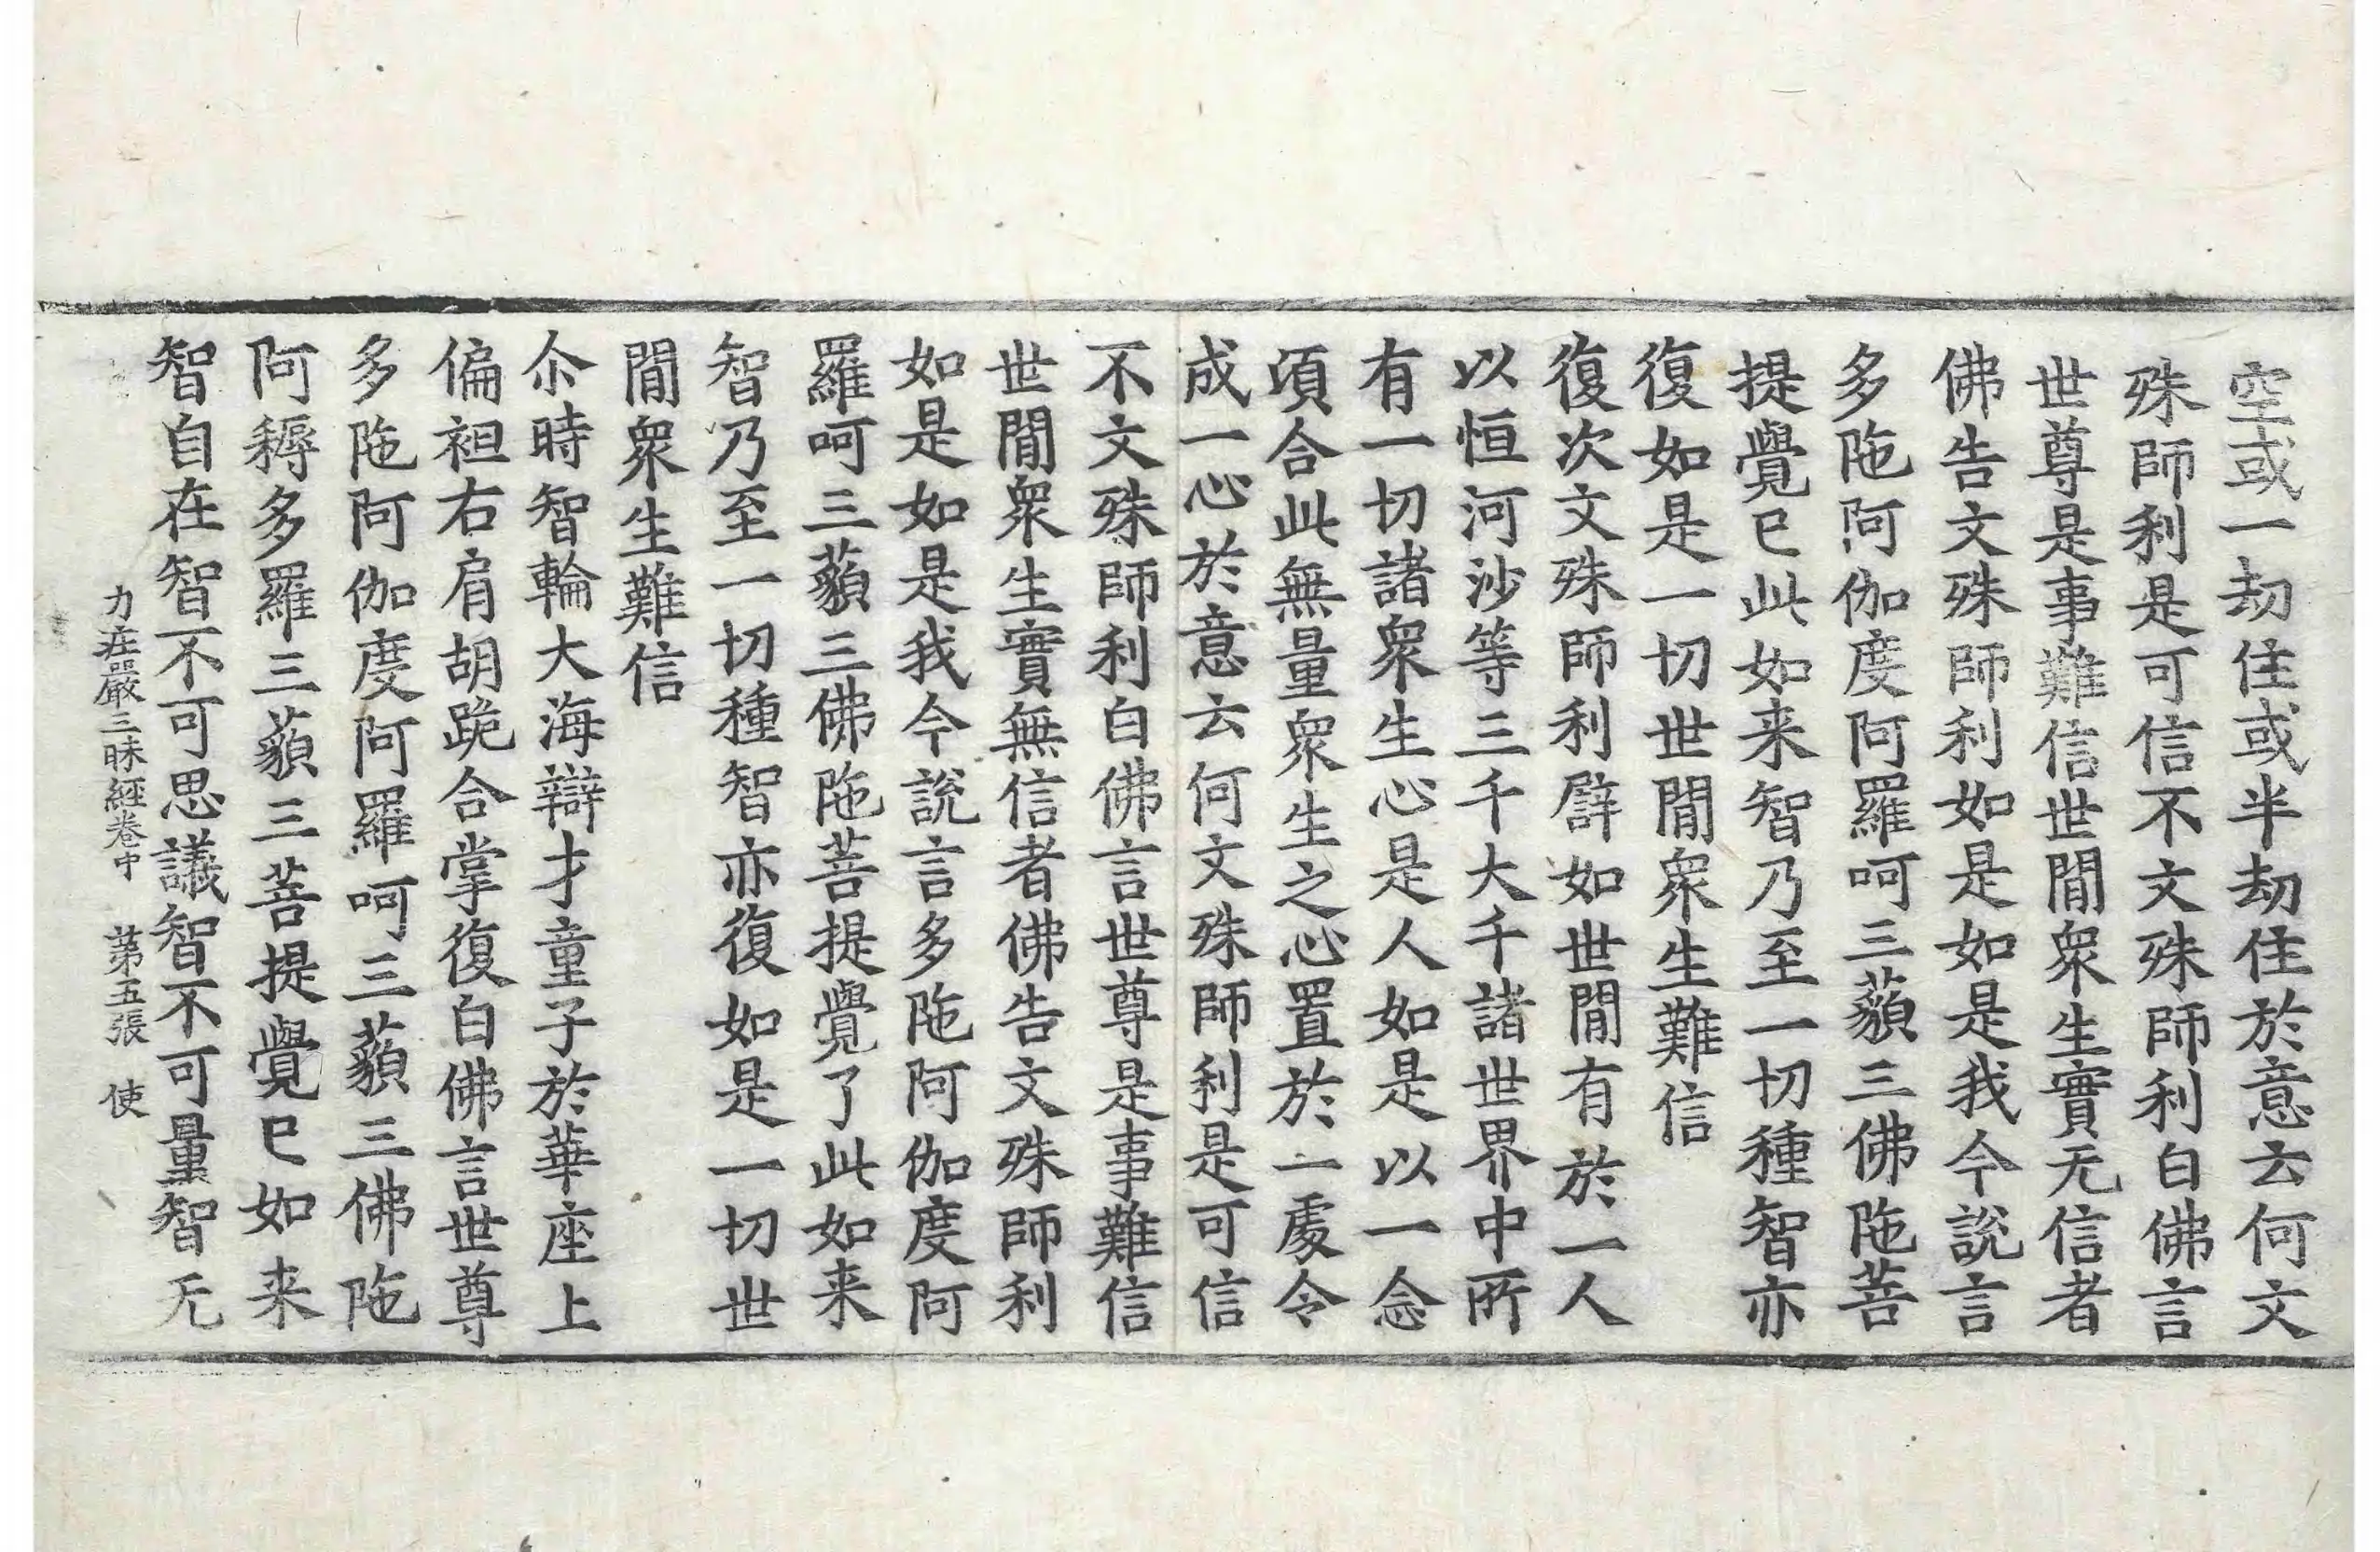 空或一劫住或半劫住於意云何文
殊師利是可信不文殊師利白佛言
世尊是事難信世閒衆生實无信者
佛告文殊師利如是如是我今說言
多陁阿伽度阿羅呵三藐三佛陁菩
提覺已此如来智乃至一切種智亦
復如是一切世閒衆生難信
復次文殊師利譬如世閒有於一人
以恒河沙等三千大千諸世界中所
有一切諸衆生心是人如是以一念
頃合此無量衆生之心置於一處令
成一心於意云何文殊師利是可信
不文殊師利白佛言世尊是事難信
世閒衆生實無信者佛告文殊師利
如是如是我今說言多陁阿伽度阿
羅呵三藐三佛陁菩提覺了此如来
智乃至一切種智亦復如是一切世
閒衆生難信
尒時智輪大海辯才童子於華座上
偏袒右肩胡跪合掌復白佛言世尊
多陁阿伽度阿羅呵三藐三佛陁
阿耨多羅三藐三菩提覺已如来
智自在智不可思議智不可量智无
力莊嚴三昧經卷中　第五張　使